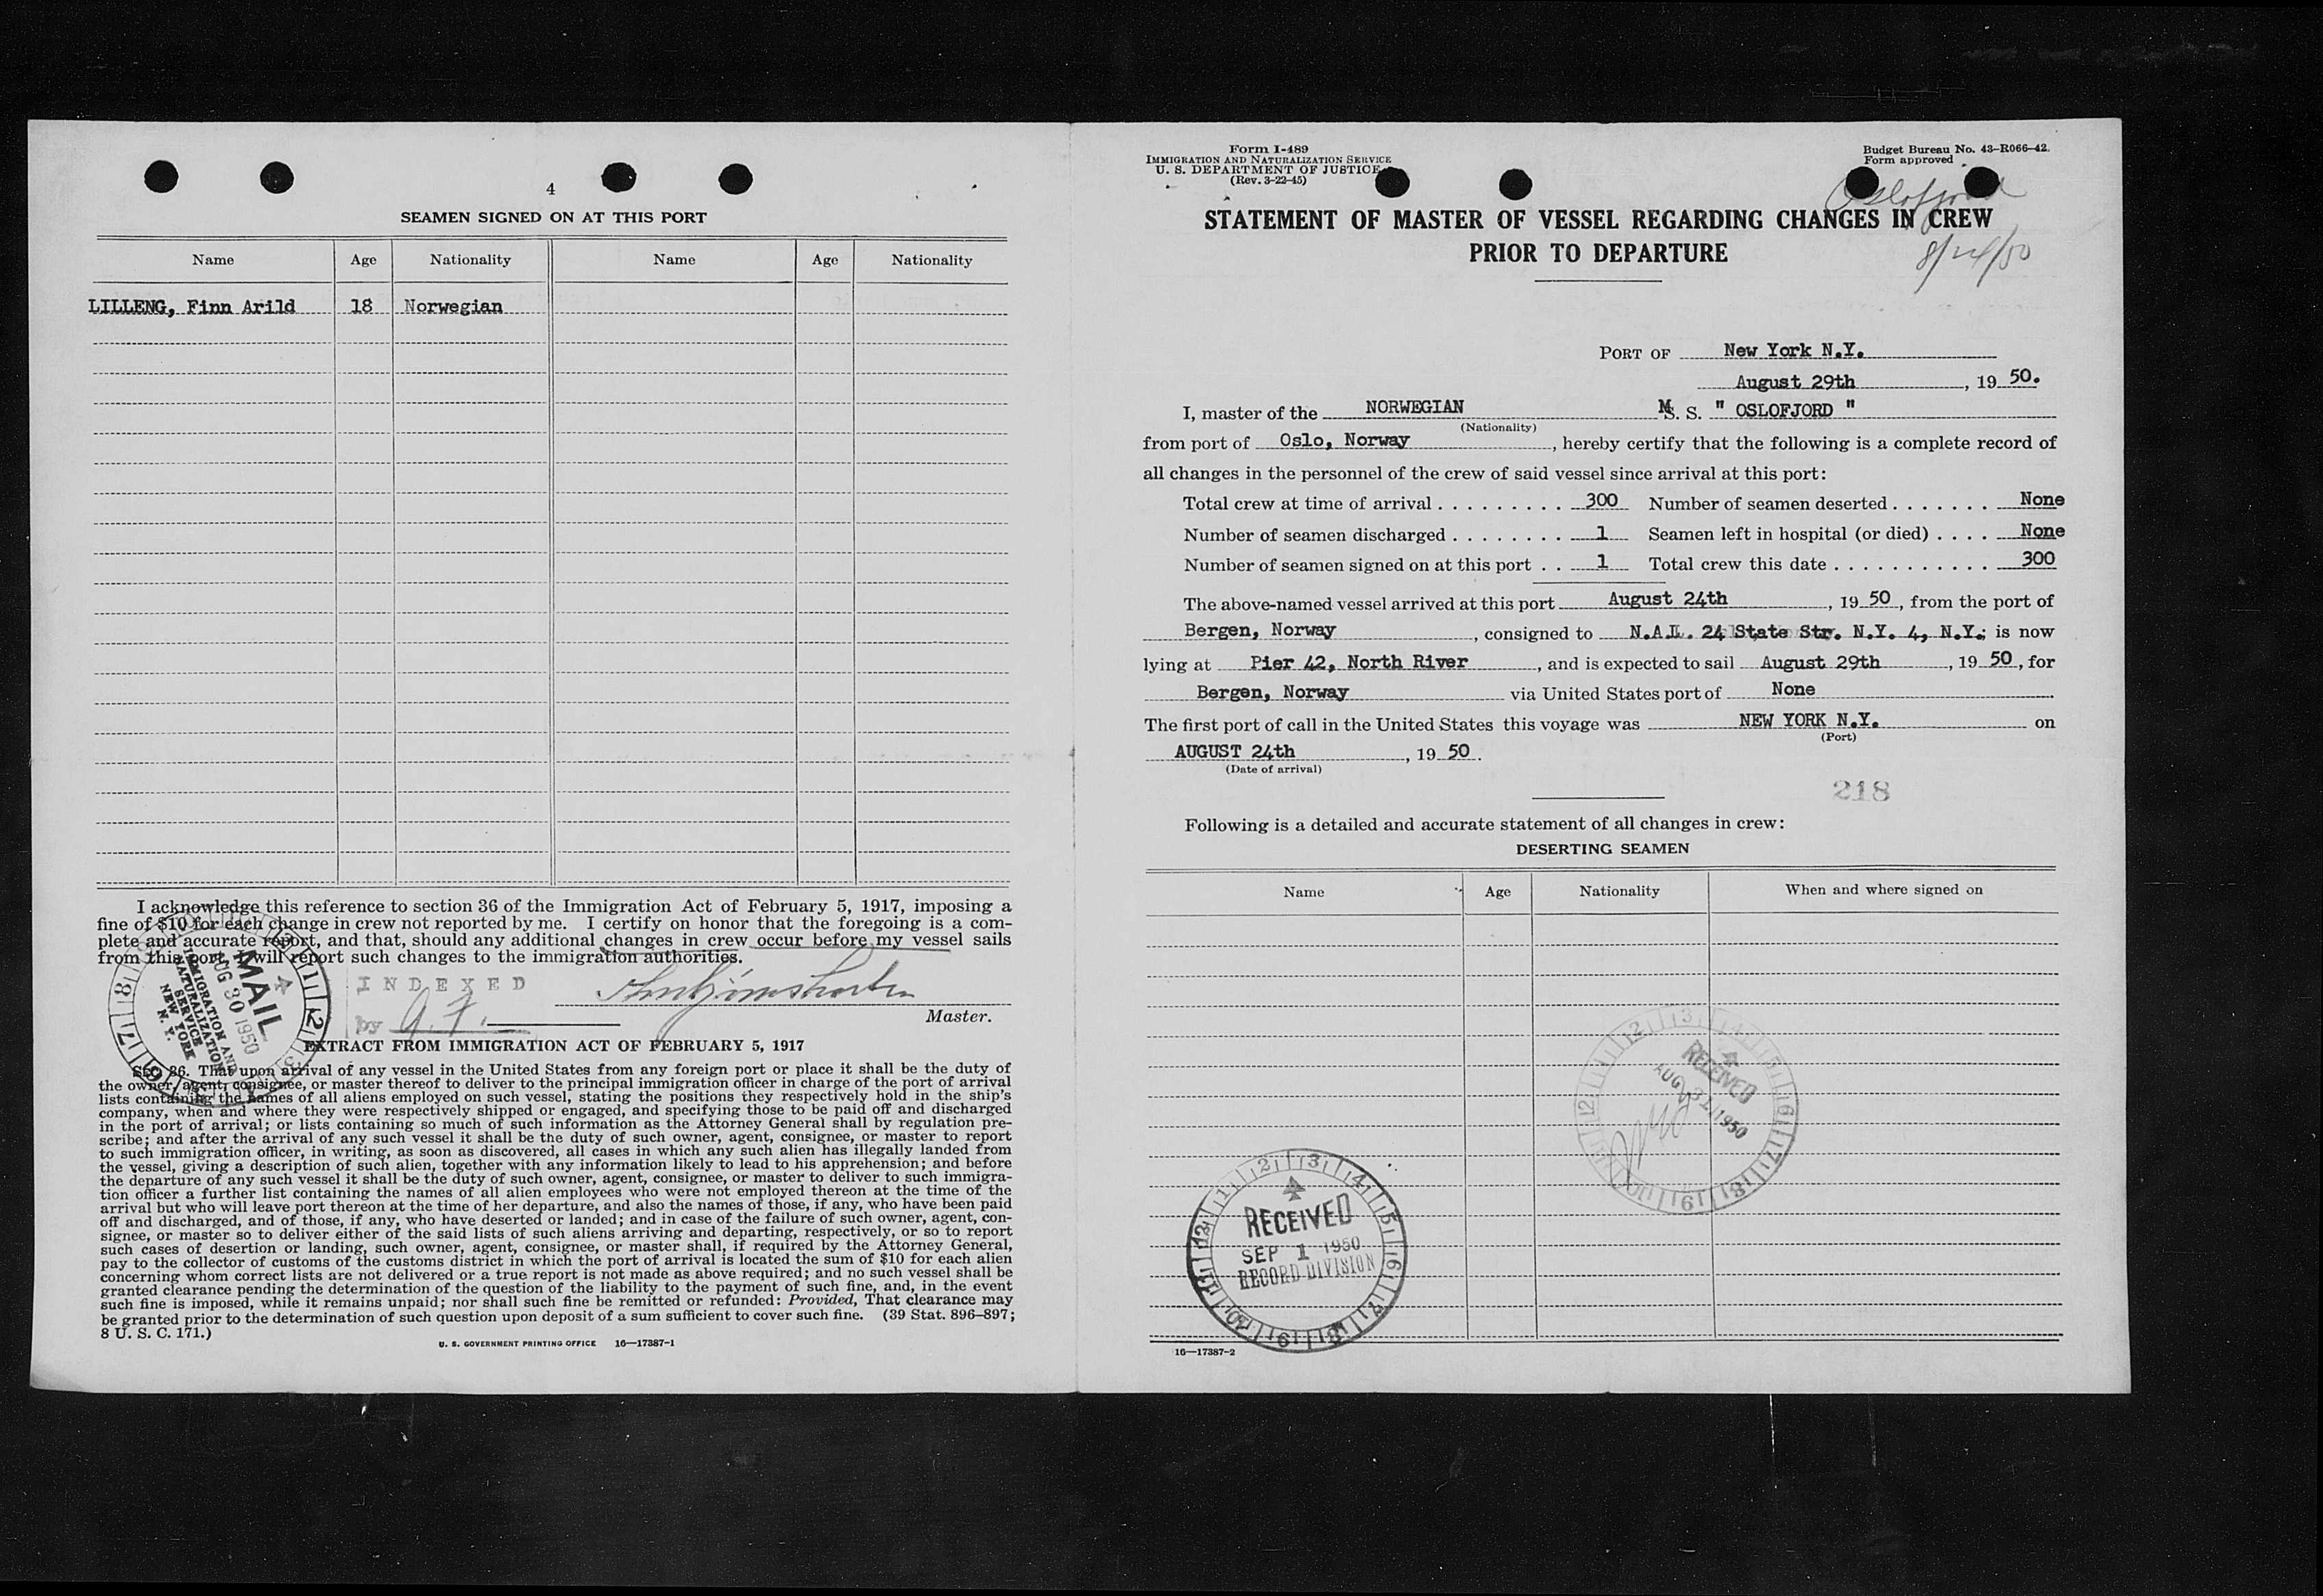 4
SEAMEN SIGNED ON AT THIS PORT
Name Age Nationality Name Age Nationality
LILLENG, Finn Arild 18 Norwegian
I acknowledge this reference to section 36 of the Immigration Act of February 5, 1917, imposing a
fine of $10 for each change in crew not reported by me. I certify on honor that the foregoing is a com-
plete and accurate report, and that, should any additional changes in crew occur before my vessel sails
from this port, I will report such changes to the immigration authorities.
MAIL
AUG 30 1950
IMMIGRATION AND
NATURALIZATION
SERVICE
NEW YORK
N. Y.
INDEXED
by
Master.
EXTRACT FROM IMMIGRATION ACT OF FEBRUARY 5, 1917
SEC. 36. That upon arrival of any vessel in the United States from any foreign port or place it shall be the duty of
the owner, agent, consignee, or master thereof to deliver to the principal immigration officer in charge of the port of arrival
lists containing the names of all aliens employed on such vessel, stating the positions they respectively hold in the ship's
company, when and where they were respectively shipped or engaged, and specifying those to be paid off and discharged
in the port of arrival; or lists containing so much of such information as the Attorney General shall by regulation pre-
scribe; and after the arrival of any such vessel it shall be the duty of such owner, agent, consignee, or master to report
to such immigration officer, in writing, as soon as discovered, all cases in which any such alien has illegally landed from
the vessel, giving a description of such alien, together with any information likely to lead to his apprehension; and before
the departure of any such vessel it shall be the duty of such owner, agent, consignee, or master to deliver to such immigra-
tion officer a further list containing the names of all alien employees who were not employed thereon at the time of the
arrival but who will leave port thereon at the time of her departure, and also the names of those, if any, who have been paid
off and discharged, and of those, if any, who have deserted or landed; and in case of the failure of such owner, agent, con-
signee, or master so to deliver either of the said lists of such aliens arriving and departing, respectively, or so to report
such cases of desertion or landing, such owner, agent, consignee, or master shall, if required by the Attorney General,
pay to the collector of customs of the customs district in which the port of arrival is located the sum of $10 for each alien
concerning whom correct lists are not delivered or a true report is not made as above required; and no such vessel shall be
granted clearance pending the determination of the question of the liability to the payment of such fine, and, in the event
such fine is imposed, while it remains unpaid; nor shall such fine be remitted or refunded: Provided, That clearance may
be granted prior to the determination of such question upon deposit of a sum sufficient to cover such fine. (39 Stat. 896–897;
8 U. S. C. 171.)
U. S. GOVERNMENT PRINTING OFFICE 16—17387-1
Form I-489
IMMIGRATION AND NATURALIZATION SERVICE
U. S. DEPARTMENT OF JUSTICE
(Rev. 3-22-45)
Budget Bureau No. 43-R066-42.
Form approved
Oslofjord
STATEMENT OF MASTER OF VESSEL REGARDING CHANGES IN CREW
PRIOR TO DEPARTURE
8/24/50
PORT OF New York N.Y.
August 29th, 19 50.
I, master of the NORWEGIAN M. S. " OSLOFJORD "
(Nationality)
from port of Oslo, Norway, hereby certify that the following is a complete record of
all changes in the personnel of the crew of said vessel since arrival at this port:
Total crew at time of arrival . . . . . . . . . 300 Number of seamen deserted . . . . . . . None
Number of seamen discharged . . . . . . . . 1 Seamen left in hospital (or died) . . . . None
Number of seamen signed on at this port . . 1 Total crew this date . . . . . . . . . . . 300
The above-named vessel arrived at this port August 24th, 19 50, from the port of
Bergen, Norway, consigned to N.A.L. 24 State Str. N.Y. 4, N.Y.; is now
lying at Pier 42, North River, and is expected to sail August 29th, 19 50, for
Bergen, Norway via United States port of None
The first port of call in the United States this voyage was NEW YORK N.Y. on
(Port)
AUGUST 24th, 19 50.
(Date of arrival)
218
Following is a detailed and accurate statement of all changes in crew:
DESERTING SEAMEN
Name Age Nationality When and where signed on
RECEIVED
AUG 31 1950
RECEIVED
SEP 1 1950
RECORD DIVISION
16—17387-2